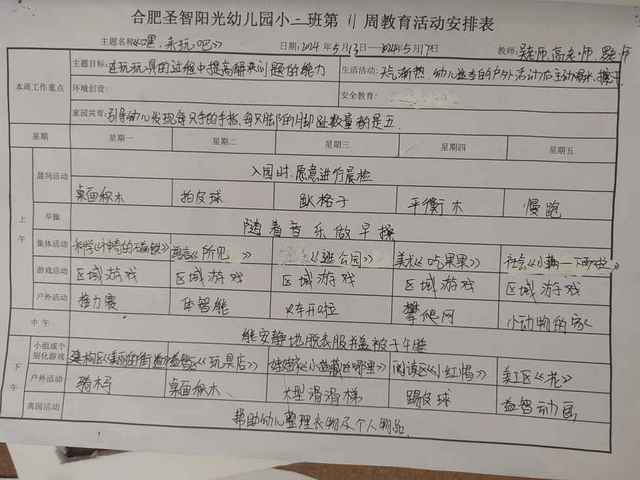 合肥圣智阳光幼儿园小二班第 11 周教育活动安排表
主题名称《嘿,来玩吧》 日期:2024年5月13日—2024年5月17日 教师:
本周工作重点 主题目标:在玩玩具的过程中提高解决问题的能力 生活活动:天气渐热,幼儿进去的户外活动后主动喝水、擦汗
环境创设: 安全教育:
家园共育:引导幼儿发现每只手的手指、每只脚的脚趾数量都是五.
星期 星期一 星期二 星期三 星期四 星期五
上午 晨间活动 入园时,愿意进行晨检
桌面积木 拍皮球 跳格子 平衡木 慢跑
早操 随着音乐做早操
集体活动 科学《神奇的磁铁》 《所见》 《逛公园》 美术《吃果果》 社会《
游戏活动 区域游戏 区域游戏 区域游戏 区域游戏 区域游戏
户外活动 接力赛 体智能 火车开啦 攀爬网 小动物的家
中午 能安静地脱衣服并盖被子午睡
下午 小组或个别化游戏 建构区《美丽的街道》 益智区《玩具店》 娃娃家《 阅读区《小红帽》 美工区《花》
户外活动 骑木马 桌面积木 大型滑滑梯 踢皮球 益智动画
离园活动 帮助幼儿整理衣物及个人物品